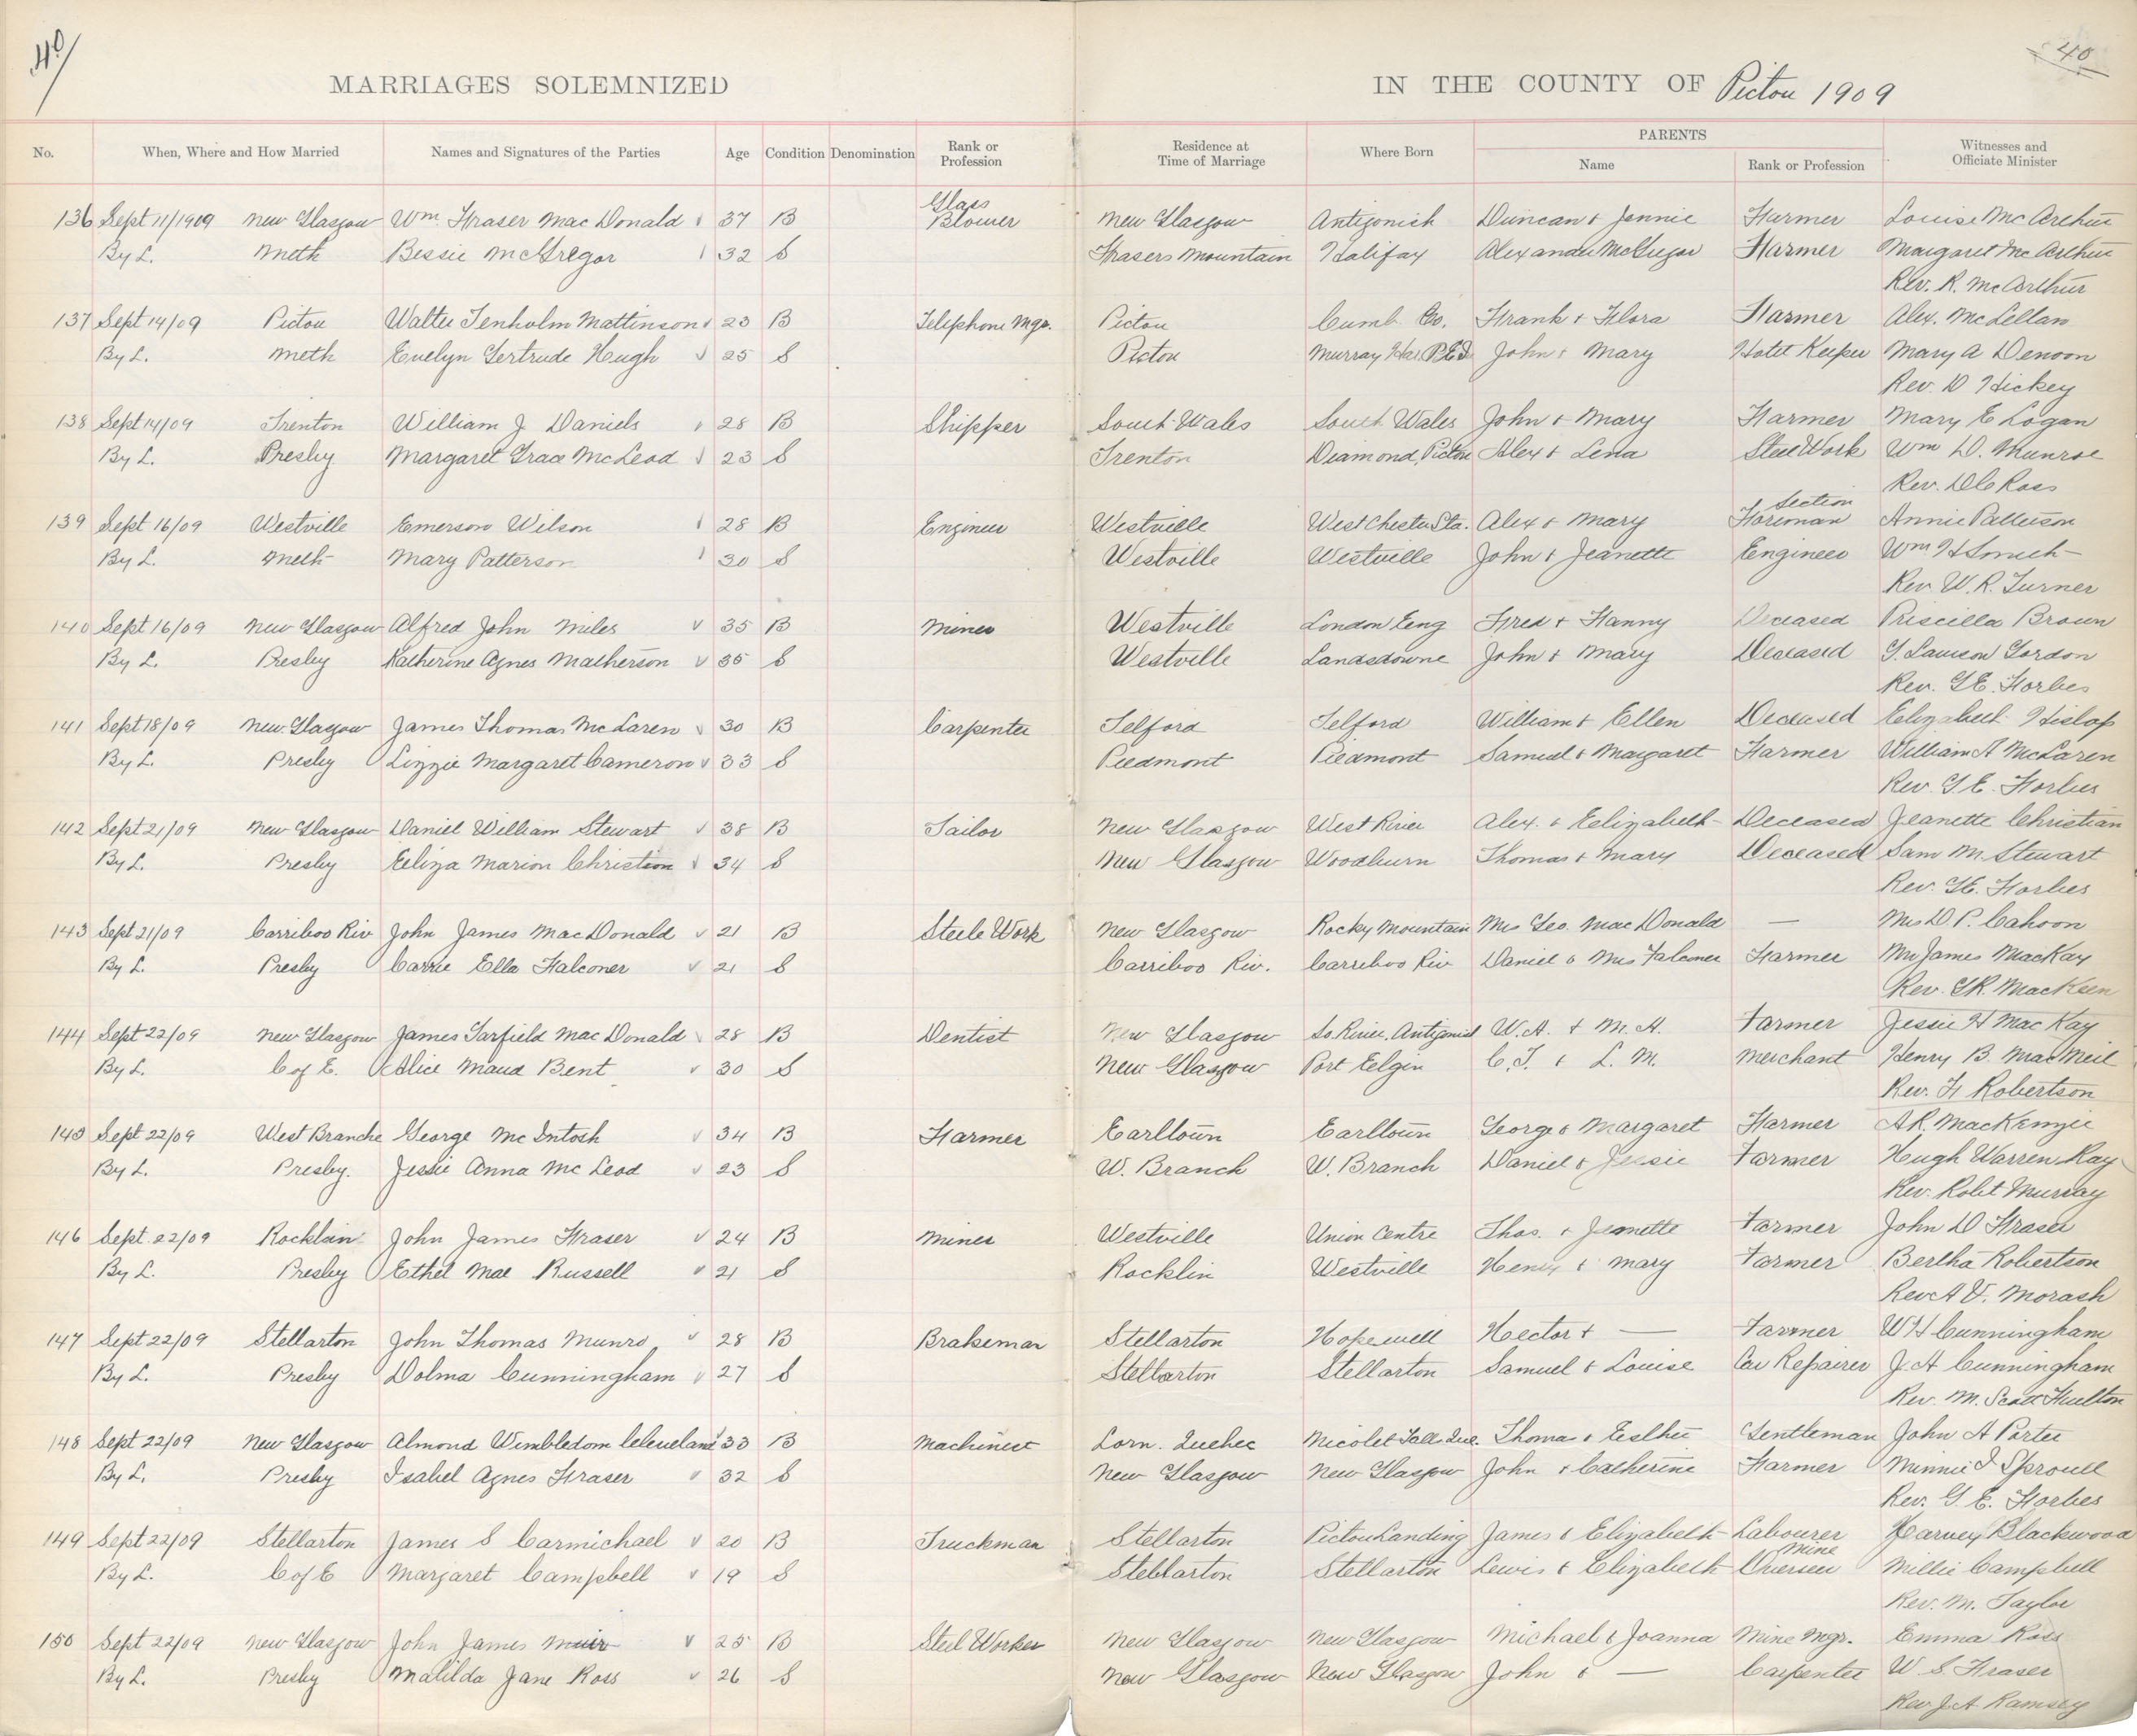 40
40
MARRIAGES SOLEMNIZED IN THE COUNTY OF Pictou 1909
No. When, Where and How Married Names and Signatures of the Parties Age Condition Denomination Rank or Profession Residence at Time of Marriage Where Born PARENTS Name Rank or Profession Witnesses and Officiate Minister
136 Sept 11/1909 New Glasgow Wm. Fraser MacDonald 37 B Glass Blower New Glasgow Antigonish Duncan & Jennie Farmer Louise McArthur
By L. Meth Bessie McGregor 32 S Frasers Mountain Halifax Alexander McGregor Farmer Margaret McArthur
Rev. R. McArthur
137 Sept 14/09 Pictou Walter Tenholm Mattinson 23 B Telephone Mgr. Pictou Cumb. Co. Frank & Flora Farmer Alex. McLellan
By L. Meth Evelyn Gertrude Hugh 25 S Pictou Murray Har. P.E.I. John & Mary Hotel Keeper Mary A Denoon
Rev. D Hickey
138 Sept 14/09 Trenton William J. Daniels 28 B Shipper South Wales South Wales John & Mary Farmer Mary E Logan
By L. Presby Margaret Grace McLeod 23 S Trenton Diamond, Pictou Alex & Lena Steel Work Wm D. Munroe
Rev. D C Ross
139 Sept 16/09 Westville Emerson Wilson 28 B Engineer Westville West Chester Sta. Alex & Mary Section Foreman Annie Patterson
By L. Meth Mary Patterson 30 S Westville Westville John & Jeanette Engineer Wm H Smith
Rev. W. R. Turner
140 Sept 16/09 New Glasgow Alfred John Miles 35 B Miner Westville London Eng Fred & Fanny Deceased Priscilla Brown
By L. Presby Katherine Agnes Matherson 35 S Westville Landsdowne John & Mary Deceased G. Lawson Gordon
Rev. G E. Forbes
141 Sept 18/09 New Glasgow James Thomas McLaren 30 B Carpenter Telford Telford William & Ellen Deceased Elizabeth Hislop
By L. Presby Lizzie Margaret Cameron 33 S Piedmont Piedmont Samuel & Margaret Farmer William A McLaren
Rev. G E. Forbes
142 Sept 21/09 New Glasgow Daniel William Stewart 38 B Tailor New Glasgow West River Alex. & Elizabeth Deceased Jeanette Christian
By L. Presby Eliza Marion Christian 34 S New Glasgow Woodburn Thomas & Mary Deceased Sam M. Stewart
Rev. G E. Forbes
143 Sept 21/09 Carriboo Riv John James MacDonald 21 B Steele Work New Glasgow Rocky Mountain Mrs Geo. MacDonald — Mrs D. P. Cahoon
By L. Presby Carrie Ella Falconer 21 S Carriboo Riv. Carriboo Riv Daniel & Mrs Falconer Farmer Mr James MacKay
Rev. G R. MacKeen
144 Sept 22/09 New Glasgow James Garfield MacDonald 28 B Dentist New Glasgow So. River, Antigonish W. A. & M. A. Farmer Jessie H MacKay
By L. C of E. Alice Maud Bent 30 S New Glasgow Port Elgin C. T. & L. M. Merchant Henry B. MacNeil
Rev. H Robertson
145 Sept 22/09 West Branche George McIntosh 34 B Farmer Earltown Earltown George & Margaret Farmer A R. MacKenzie
By L. Presby. Jessie Anna McLeod 23 S W. Branch W. Branch Daniel & Jessie Farmer Hugh Warren Ray
Rev. Robt Murray
146 Sept. 22/09 Rocklin John James Fraser 24 B Miner Westville Union Centre Thos. & Jeanette Farmer John D Fraser
By L. Presby Ethel Mae Russell 21 S Rocklin Westville Henry & Mary Farmer Bertha Robertson
Rev A V. Morash
147 Sept 22/09 Stellarton John Thomas Munro 28 B Brakeman Stellarton Hopewell Hector & — Farmer W H Cunningham
By L. Presby Dolma Cunningham 27 S Stellarton Stellarton Samuel & Louise Car Repairer J. A Cunningham
Rev. M. Scott Fulton
148 Sept 22/09 New Glasgow Almond Wimbledom Cleveland 33 B Machinest Lorn. Quebec Nicolet Falls Que. Thomas & Esther Gentleman John A Porter
By L. Presby Isabel Agnes Fraser 32 S New Glasgow New Glasgow John & Catherine Farmer Minnie I Sproull
Rev. G. E. Forbes
149 Sept 22/09 Stellarton James S Carmichael 20 B Truckman Stellarton Pictou Landing James & Elizabeth Labourer Harvey Blackwood
By L. C of E Margaret Campbell 19 S Stellarton Stellarton Lewis & Elizabeth Mine Overseer Millie Campbell
Rev. M. Taylor
150 Sept 22/09 New Glasgow John James Muir 25 B Steel Worker New Glasgow New Glasgow Michael & Joanna Mine Mgr. Emma Ross
By L. Presby Matilda Jane Ross 26 S New Glasgow New Glasgow John & — Carpenter W. S. Fraser
Rev J. A. Ramsey